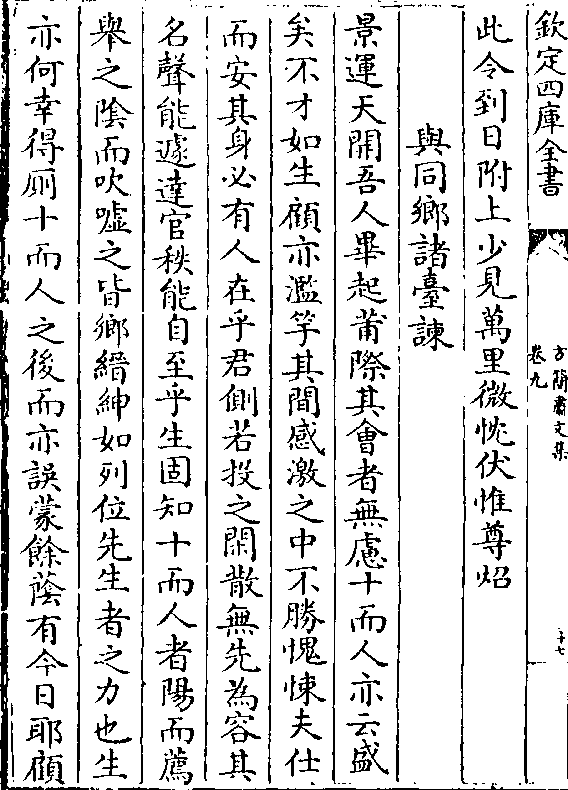 欽定四庫全書
方簡肅文集
卷九
十七
此令到日附上少見萬里微忱伏惟尊炤
與同鄉諸臺諫
景運天開吾人畢起莆際其會者無慮十而人亦云盛
矣不才如生顧亦濫竽其間感激之中不勝愧悚夫仕
而安其身必有人在乎君側若投之閑散無先為容其
名聲能遽達官秩能自至乎生固知十而人者陽而薦
舉之陰而吹噓之皆鄉縉紳如列位先生者之力也生
亦何幸得厠十而人之後而亦誤蒙餘蔭有今日耶顧